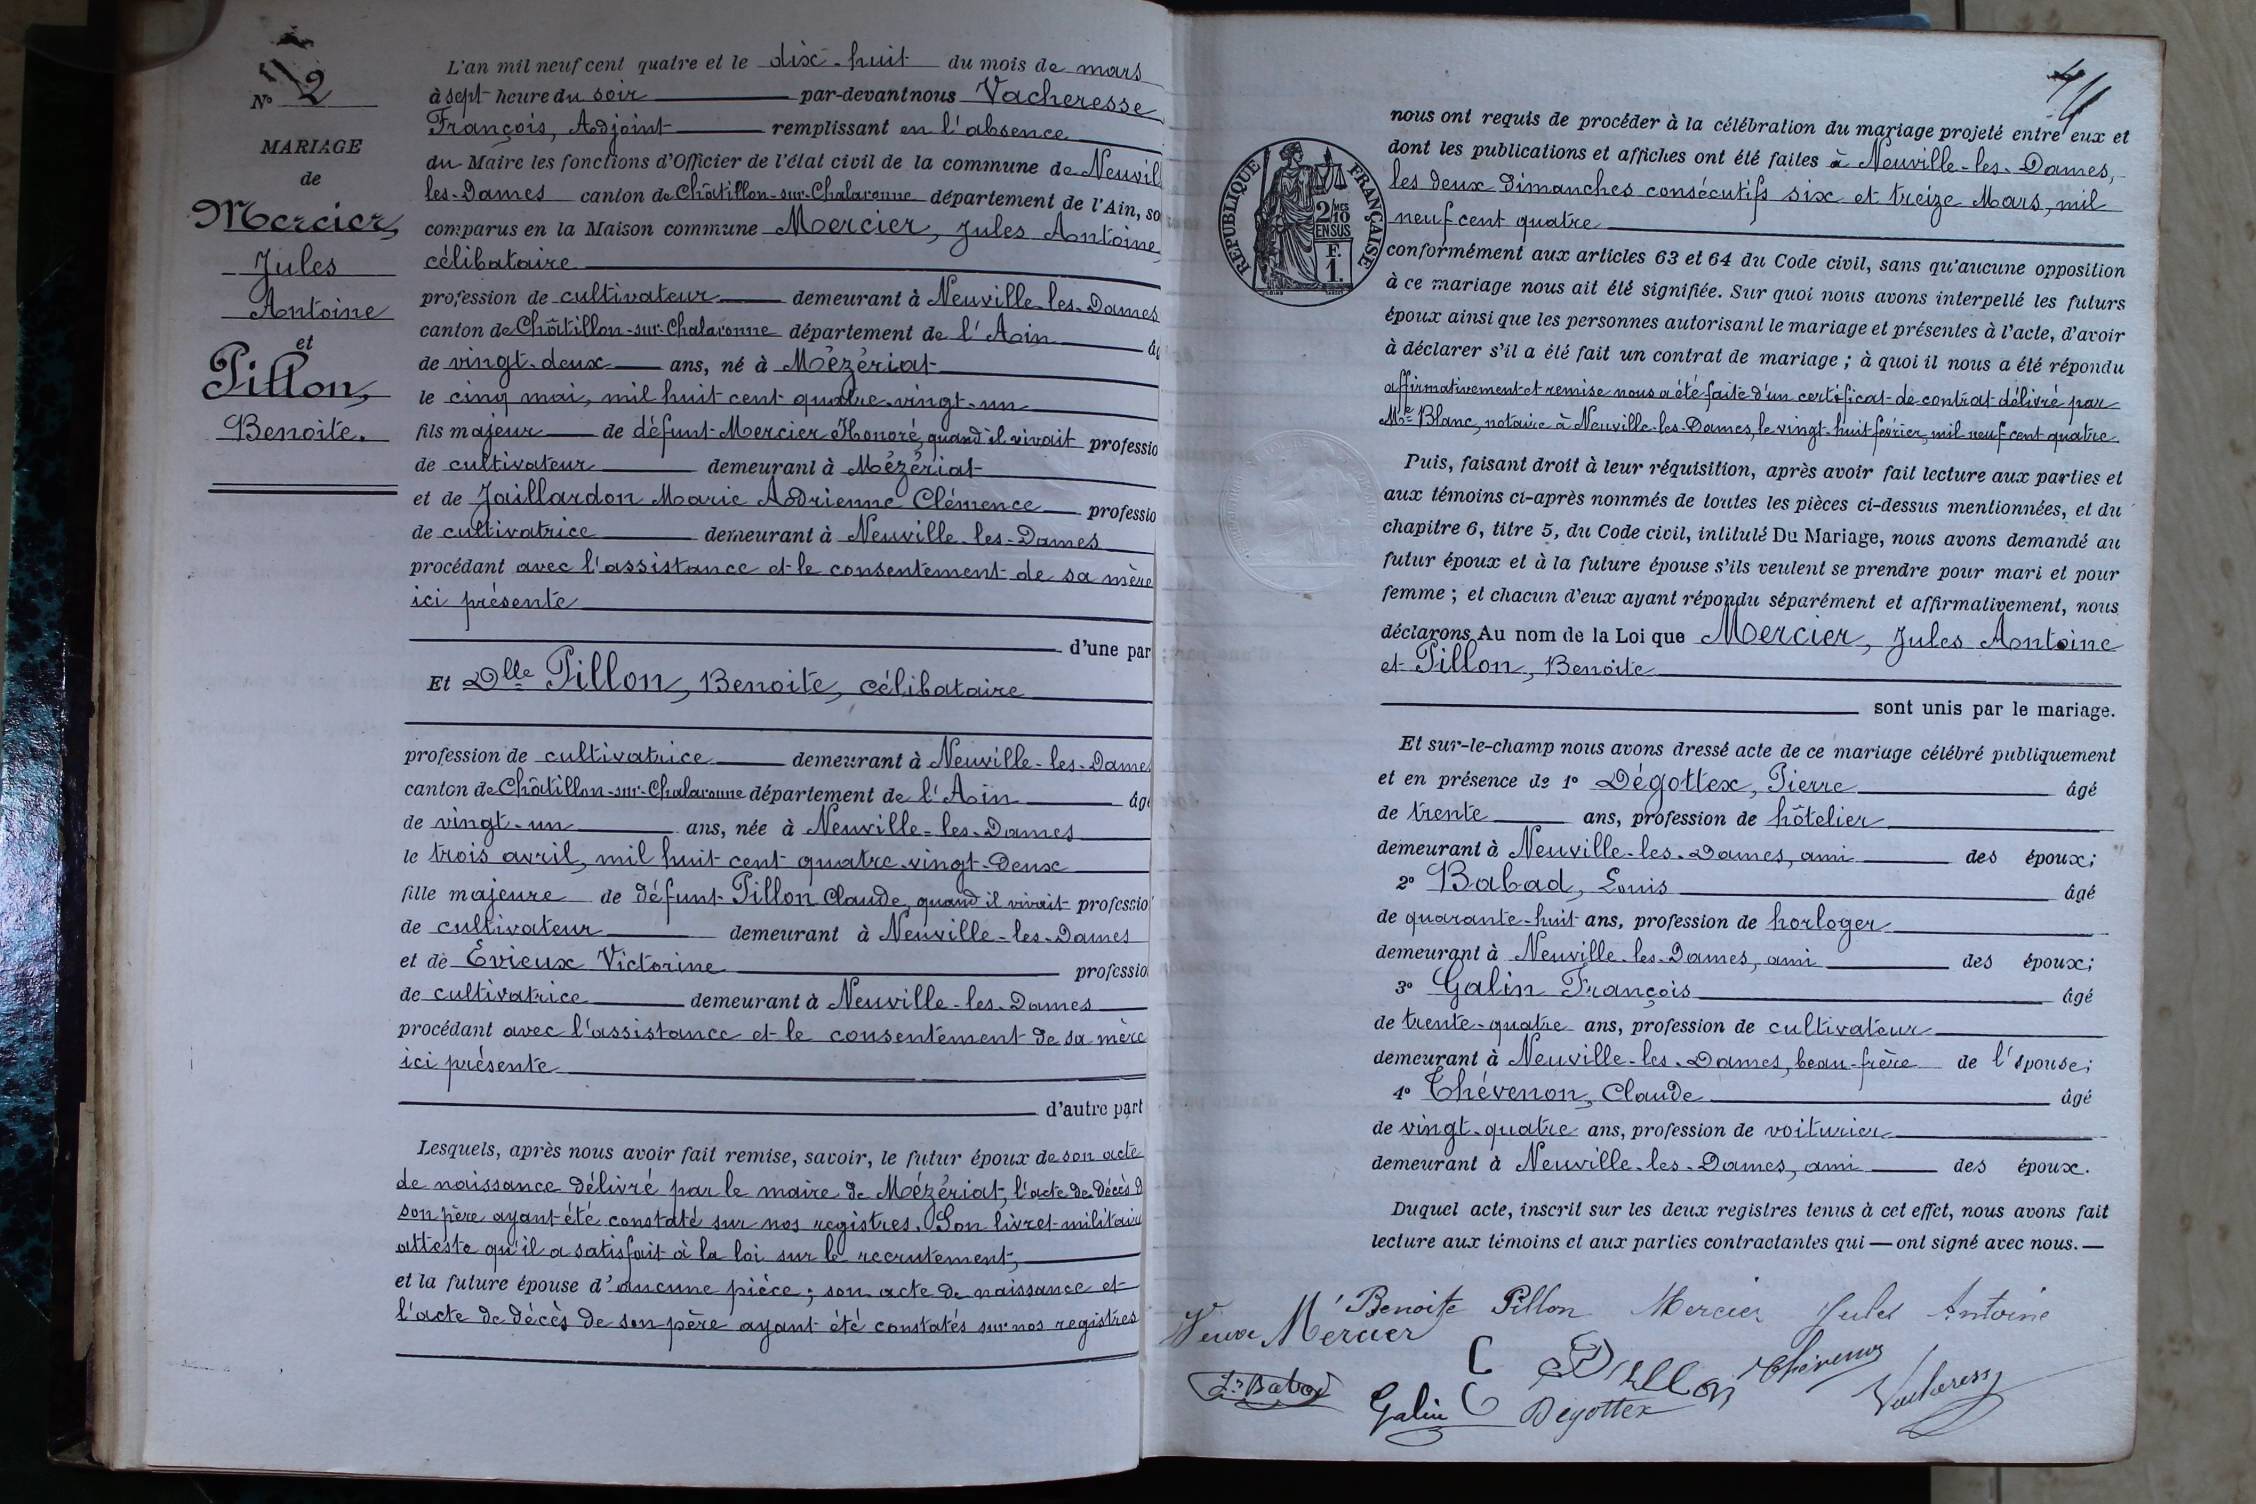 N° 2
MARIAGE
de
Mercier,
Jules
Antoine
et
Pillon,
Benoite.
L'an mil neuf cent quatre et le dix-huit du mois de mars
à sept heure du soir par-devant nous Vacheresse
François, Adjoint remplissant en l'absence
du Maire les fonctions d'Officier de l'état civil de la commune de Neuvil
les-Dames canton de Châtillon-sur-Chalaronne département de l'Ain, so
comparus en la Maison commune Mercier, Jules Antoine,
célibataire
profession de cultivateur demeurant à Neuville-les-Dames
canton de Châtillon-sur-Chalaronne département de l'Ain âg
de vingt-deux ans, né à Mézériat
le cinq mai, mil huit cent quatre-vingt-un
fils majeur de défunt Mercier Honoré, quand il vivait professio
de cultivateur demeurant à Mézériat
et de Jaillardon Marie Adrienne Clémence professio
de cultivatrice demeurant à Neuville-les-Dames
procédant avec l'assistance et le consentement de sa mère
ici présente
d'une par
Et Dlle Pillon, Benoite, célibataire
profession de cultivatrice demeurant à Neuville-les-Dame
canton de Châtillon-sur-Chalaronne département de l'Ain âgé
de vingt-un ans, née à Neuville-les-Dames
le trois avril, mil huit cent quatre-vingt-deux
fille majeure de défunt Pillon Claude, quand il vivait professio
de cultivateur demeurant à Neuville-les-Dames
et de Evieux Victorine professio
de cultivatrice demeurant à Neuville-les-Dames
procédant avec l'assistance et le consentement de sa mère
ici présente
d'autre part
Lesquels, après nous avoir fait remise, savoir, le futur époux de son acte
de naissance délivré par le maire de Mézériat, l'acte de décès d
son père ayant été constaté sur nos registres. Son livret militaire
atteste qu'il a satisfait à la loi sur le recrutement,
et la future épouse d'aucune pièce ; son acte de naissance et
l'acte de décès de son père ayant été constatés sur nos registres
4
REPUBLIQUE FRANÇAISE
2/10 MES
EN SUS
F.
1.
nous ont requis de procéder à la célébration du mariage projeté entre eux et
dont les publications et affiches ont été faites à Neuville-les-Dames,
les deux dimanches consécutifs six et treize Mars, mil
neuf cent quatre
conformément aux articles 63 et 64 du Code civil, sans qu'aucune opposition
à ce mariage nous ait été signifiée. Sur quoi nous avons interpellé les futurs
époux ainsi que les personnes autorisant le mariage et présentes à l'acte, d'avoir
à déclarer s'il a été fait un contrat de mariage ; à quoi il nous a été répondu
affirmativement et remise nous a été faite d'un certificat de contrat délivré par
Me Blanc, notaire à Neuville-les-Dames, le vingt-huit février, mil neuf cent quatre.
Puis, faisant droit à leur réquisition, après avoir fait lecture aux parties et
aux témoins ci-après nommés de toutes les pièces ci-dessus mentionnées, et du
chapitre 6, titre 5, du Code civil, intitulé Du Mariage, nous avons demandé au
futur époux et à la future épouse s'ils veulent se prendre pour mari et pour
femme ; et chacun d'eux ayant répondu séparément et affirmativement, nous
déclarons Au nom de la Loi que Mercier, Jules Antoine
et Pillon, Benoite
sont unis par le mariage.
Et sur-le-champ nous avons dressé acte de ce mariage célébré publiquement
et en présence de 1° Dégottex, Pierre âgé
de trente ans, profession de hôtelier
demeurant à Neuville-les-Dames, ami des époux;
2° Babad, Louis âgé
de quarante-huit ans, profession de horloger
demeurant à Neuville-les-Dames, ami des époux;
3° Galin François âgé
de trente-quatre ans, profession de cultivateur
demeurant à Neuville-les-Dames, beau-frère de l'épouse;
4° Thévenon, Claude âgé
de vingt-quatre ans, profession de voiturier
demeurant à Neuville-les-Dames, ami des époux.
Duquel acte, inscrit sur les deux registres tenus à cet effet, nous avons fait
lecture aux témoins et aux parties contractantes qui — ont signé avec nous. —
Benoite Pillon Mercier Jules Antoine
Veuve Mercier
C Pillon Thévenon
Ls Babad Galin Degottex Vacheresse